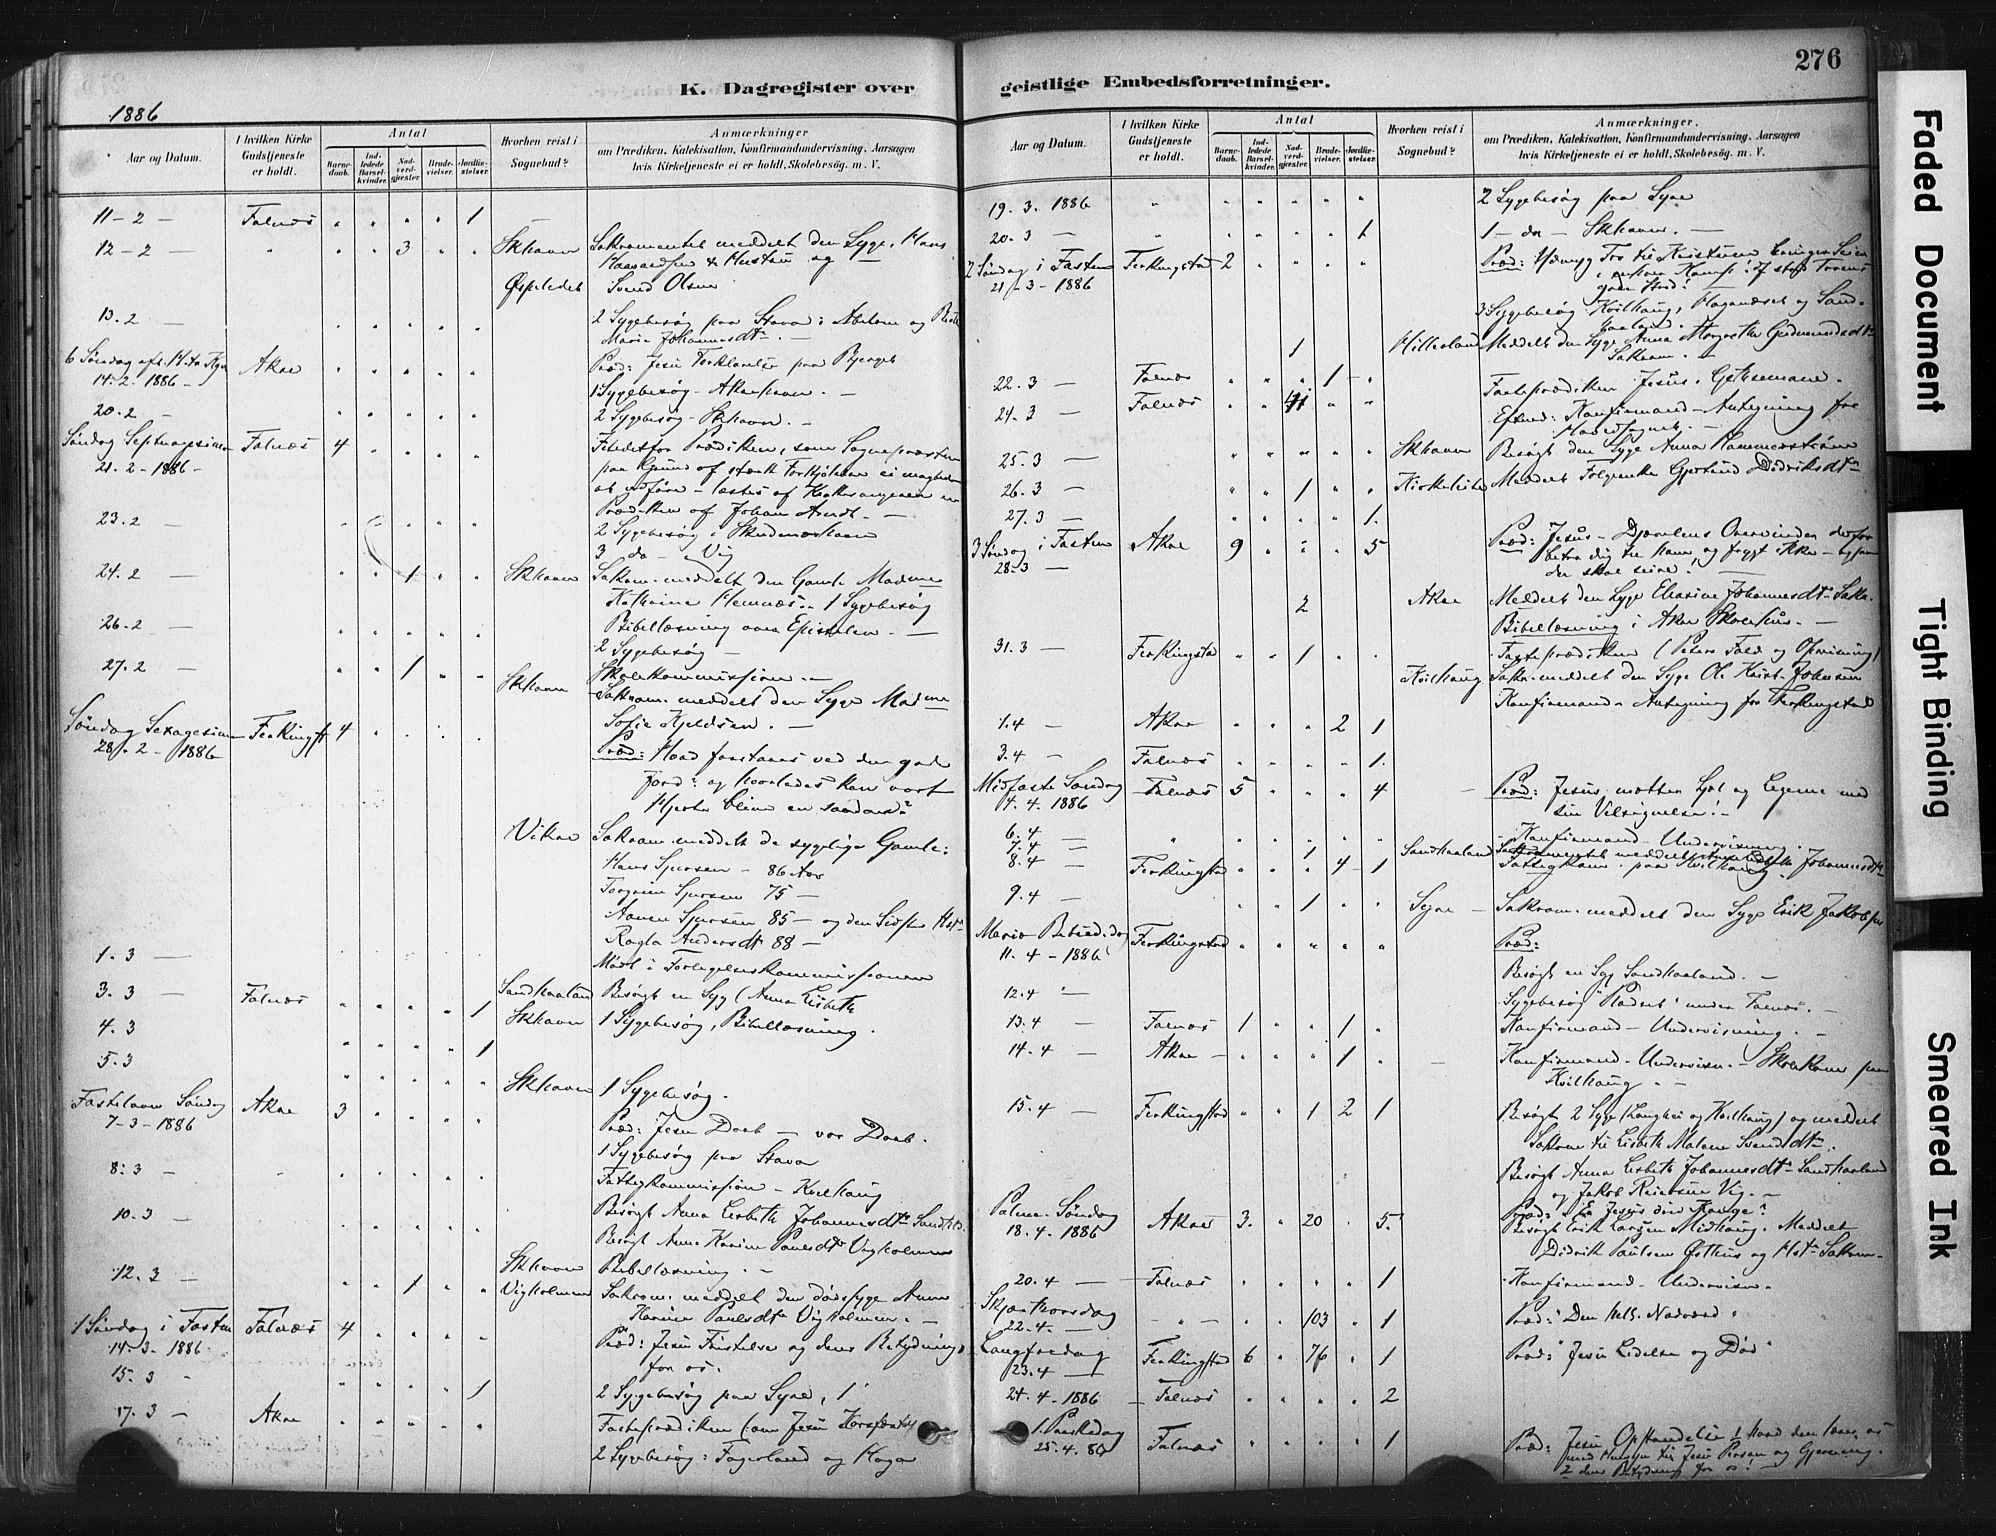 276
K. Dagregister over geistlige Embedsforretninger.
1886
Aar og Datum.
I hvilken Kirke Gudstjeneste er holdt.
Antal
Barnedaab.
Indledede Barselkvinder.
Nadverdgjester.
Brudevielser.
Jordfæstelser.
Hvorhen reist i Sognebud?
Anmærkninger
om Prædiken, Katekisation, Konfirmandundervisning, Aarsagen
hvis Kirketjeneste ei er holdt, Skolebesög m. V.
11-2 — Falnæs " " " " 1 —
12-2 — " " " 3 " " Skhavn Sakramentet meddelt den Syge, Hans
& Hustru og
Svend Olsen
13.2 — " " " " " 2 Sygebesøg paa Stava
Maria Johannesdtr. —
6 Søndag eft. H. tr. Kgr.
14.2.1886 — Akre " " " " " Præd: Jesu Forklarelse paa Bjerget
1 Sygebesøg - Akrehavn. —
20.2 — " " " " " 2 Sygebesøg - Skhavn. —
Søndag Septuagesima
21.2-1886 — Falnæs 4 " " " " Istedetfor Prædiken, som Sognepræsten
paa Grund af stærk Forkjølelse ei
at udføre - læstes af Kirkesangeren en
Prædiken af Johan Arndt. —
23.2 " " " " " 2 Sygebesøg i Skudeneshavn
3 do - Vig
24.2 — " " 1 " " Skhavn Sakram. meddelt den Gamle Madme
1 Sygebesøg
26.2 — " " " " " Bibellæsning over Epistelen. —
2 Sygebesøg —
27.2 — " " 1 " " Skolekommission. —
Skhavn Sakram. meddelt den Syge Madme
Sofie Kjeldsen. —
Søndag Sexagesima
28.2-1886 Ferkingst 4 " " " " Præd: Hvad forstaaes ved den gode
Jord? og hvorledes kan vort
Hjerte blive en saadan?
Vikre Sakram. meddelt de sygelige Gamle:
Hans Sjursen - 86 Aar
Sjursen 75 —
Sjursen 85 — og den Sidstes Hst
Andersdtr 88 —
1.3 — Møde i Forligelseskommissionen
3.3 — Falnæs " " " " 1 Sandhaaland Besøgt en Syg (Anna Lisbeth
4.3 " " " " 1 Skhavn 1 Sygebesøg, Bibellæsning.
5.3 " " " " " Skhavn 1 Sygebesøg.
Fastelavns Søndag
7-3-1886 Akre 3 " " " " Præd: Jesu Daab — vor Daab.
1 Sygebesøg paa Stava
8.3 — " " " " " Fattigkommission - Kvilhaug
10.3 — " " " " " Besøgt Anna Lisbeth Johannesdtr
Besøgt Anna Karine Paulsdtr Vigholmen
12.3 — " " 1 " " Skhavn Bibellæsning. —
Vigholmen Sakram. meddelt den dødssyge Anna
Karine Paulsdtr Vigholmen. —
1 Søndag i Fasten
14.3.1886 Falnæs 4 " " " " Præd: Jesu Fristelse og dens Betydning
for os.
15.3 " " " " 1 2 Sygebesøg paa Syre, 1
17.3 — Akre " " " " " Fasteprædiken (om Jesu Korsfæst
2 Sygebesøg: Fagerland og Haga
Aar og Datum.
I hvilken Kirke Gudstjeneste er holdt.
Antal
Barnedaab.
Indledede Barselkvinder.
Nadverdgjester.
Brudevielser.
Jordfæstelser.
Hvorhen reist i Sognebud?
Anmærkninger.
om Prædiken, Katekisation, Konfirmandundervisning, Aarsagen
hvis Kirketjeneste ei er holdt, Skolebesög m. V.
19.3.1886 " " " " " " 2 Sygebesøg paa Syre
20.3 — " " " " " 1 1 - do - Skhavn. —
2 Søndag i Fasten
21-3-1886 Ferkingstad 2 " " " " Præd: Ydmyg Tro til Kristum bringer Seier
3 Sygebesøg Kvilhaug,
1 Hillesland Meddelt den Syge Anna Margrethe Gudmundsdtr
Sakram. —
22.3 — Falnæs " " " 1 "
24.3 — Falnæs " " " " Fasteprædiken Jesus i Gethsemane.
Konfirmand - Antegning for
Hovedsognet. —
25.3 — " " " " " Skhavn Besøgt den Syge Anna Hammerstrøm
26.3 — " " 1 " " Kirkeleite Meddelt Gjertrud Didriksdtr
27.3 — " " " " 1.
3 Søndag i Fasten
28.3 — Akre 9 " " " 5 Præd: Jesus - Djævelens Overvinder derfor
du skal seire. —
2 Akre Meddelt den Syge Johannesdtr Sakr.
Bibellæsning i Akre Skolehus. —
31.3 — Ferkingstad " " 1 " " Fasteprædiken (Peters Fald og Opreisning)
Kvilhaug Sakr. meddelt den Syge Ole Krist. Johnsen
1.4 — Akre " " " 2 1 Konfirmand - Antegning for Ferkingstad
3.4 — Falnæs " " " " 1.
Midfaste Søndag
4.4.1886 Falnæs 5 " " " 4 — Præd: Jesus mætter Sjæl og Legeme med
sin Velsignelse! —
6.4 — " " " "
7.4 — 1 Konfirmand - Undervisning.
8.4 — Ferkingstad " " " 4 1 Sandhaaland Sakramentet meddelt Johannesdtr
Fattigkom. paa Kvilhaug.
9.4 — " " 1 " " Syre — Sakram. meddelt den Syge Erik Jakobsen
Mariæ Bebud.dag
11.4-1886 Ferkingstad " " " " " Præd:
Besøgt en Syg Sandhaaland. —
12.4 — Sygebesøg under Falnæs. —
13.4 — Falnæs 1 " " 1 " Konfirmand - Undervisning. —
14.4 — Akre — " " " 1 " — Konfirmand - Undervisn. - Skolekom paa
Kvilhaug. —
15.4 — Ferkingstad " " 1 2 1 Besøgt 2 Syge (Langhei og Kvilhaug) og meddelt
Sakram til Lisbeth Malene Svendsdtr.
Besøgt Anna Lisbeth Johannesdtr Sandhaaland
og Jakob Reiersen Vig. —
Palme Søndag
18.4.1886 Akre 3. " 20 " 5. Præd: Er Jesus din Konge?
Besøgt Erik Larsen Midhaug. Meddelt
Didrik Paulsen Østhus og Hstr Sakram —
20.4 — Falnæs " " " " 1 Konfirmand - Undervisn.
Skjærthorsdag
22.4. — " " " 103 " 1 Præd: "Den hell. Nadverd"
Langfredag
23.4 — Ferkingstad 6 " 76 " 1 Præd: "Jesu Lidelse og Død"
24.4.1886 Falnæs " " " " 2
1. Paaskedag
25.4.86 Falnæs " " " " 1 Præd: Jesu Opstandelse 1 Hvad den lærer os
med Hensyn til Jesu Person og Gjerning.
2 dens Betydning for os. —
Faded Document
Tight Binding
Smeared Ink